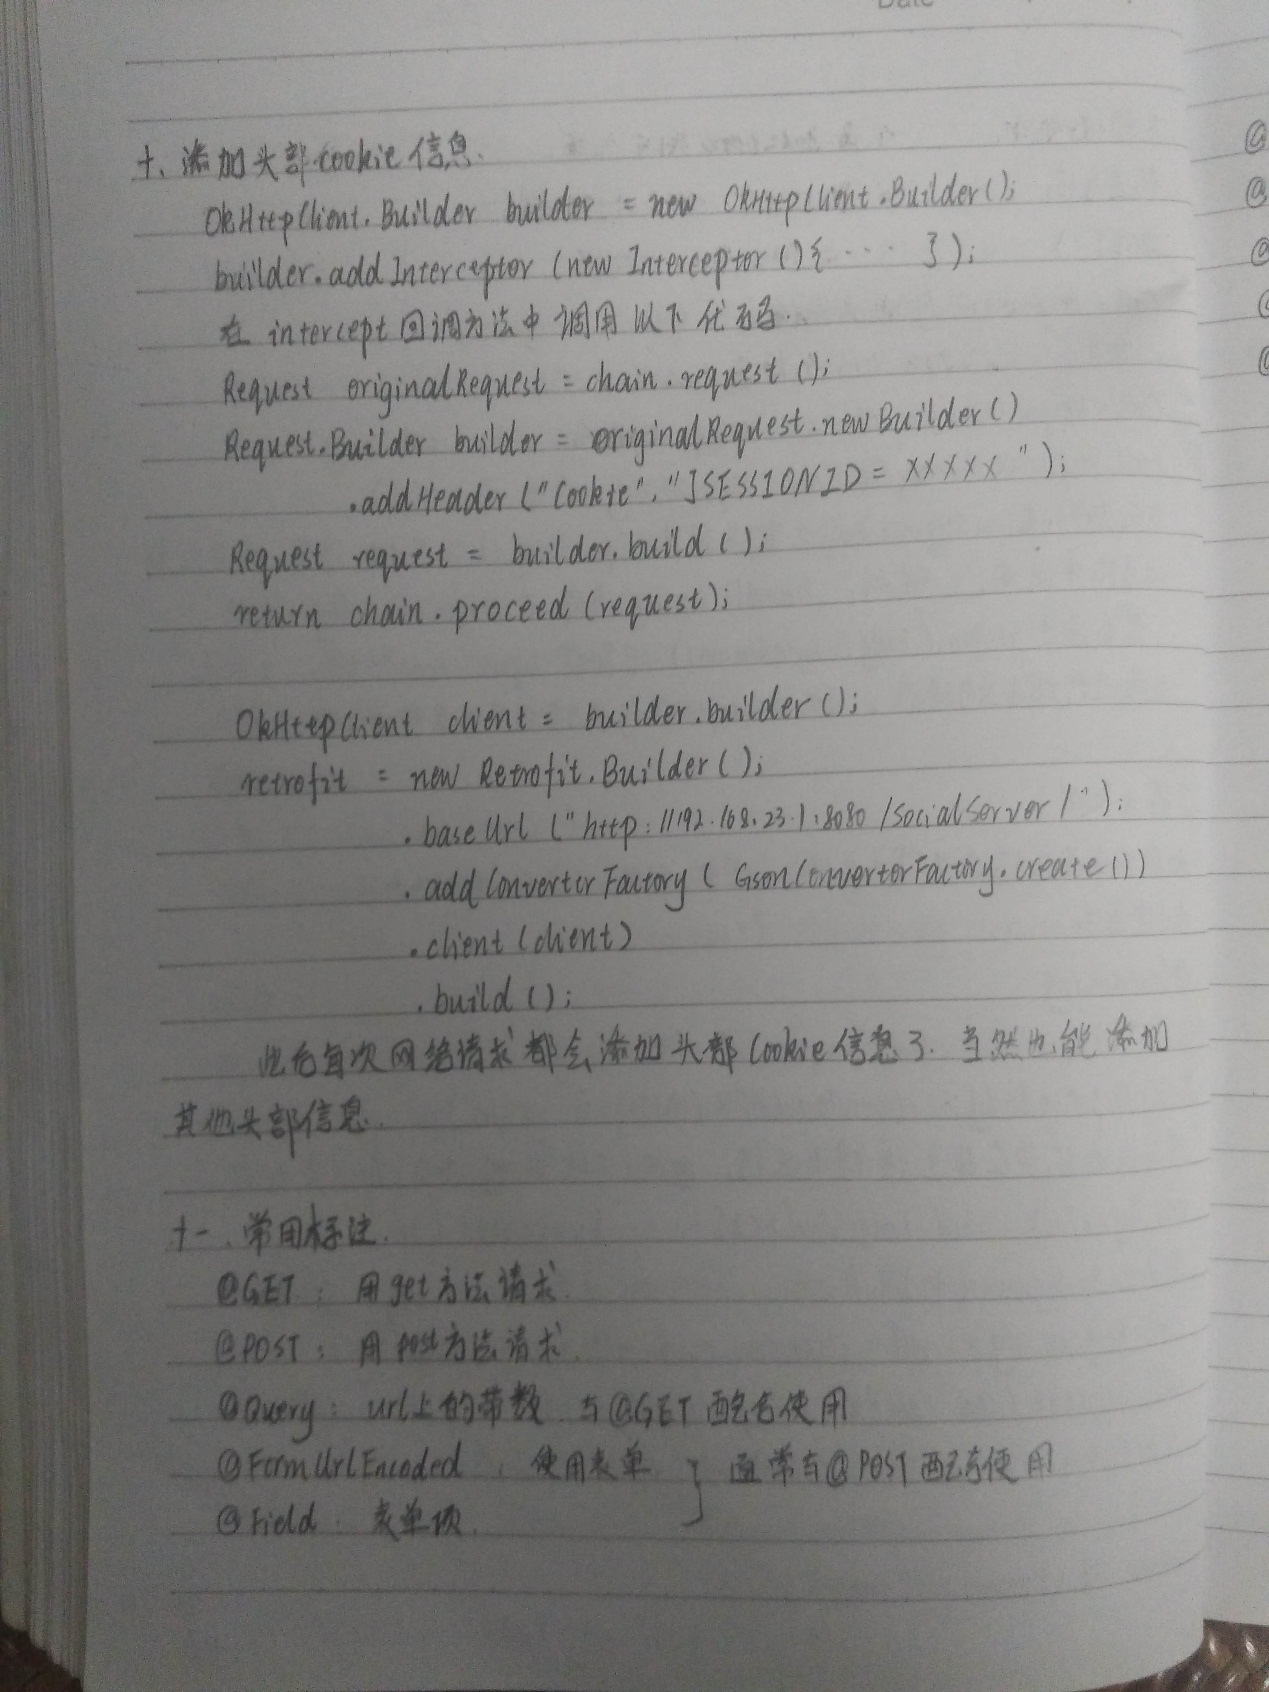 Date
十、添加头部cookie信息.
OkHttpClient.Builder builder = new OkHttpClient.Builder();
builder.addInterceptor (new Interceptor (){ ···· });
在 intercept回调方法中调用以下代码.
Request originalRequest = chain.request ();
Request.Builder builder = originalRequest.newBuilder()
.addHeader ("Cookie", "JSESSIONID = XXXXX ");
Request request = builder.build ();
return chain.proceed (request);
OkHttpClient client = builder.builder ();
retrofit = new Retrofit.Builder ();
.baseUrl ("http://192.168.23.1:8080/SocialServer/");
.addConverterFactory ( GsonConverterFactory.create ())
.client (client)
.build ();
此后每次网络请求都会添加头部Cookie信息了. 当然也能添加
其他头部信息.
十一、常用标注.
@GET: 用get方法请求.
@POST: 用post方法请求.
@Query: url上的带数 与@GET配合使用
@FormUrlEncoded : 使用表单 } 通常与@POST配合使用
@Field: 表单项.